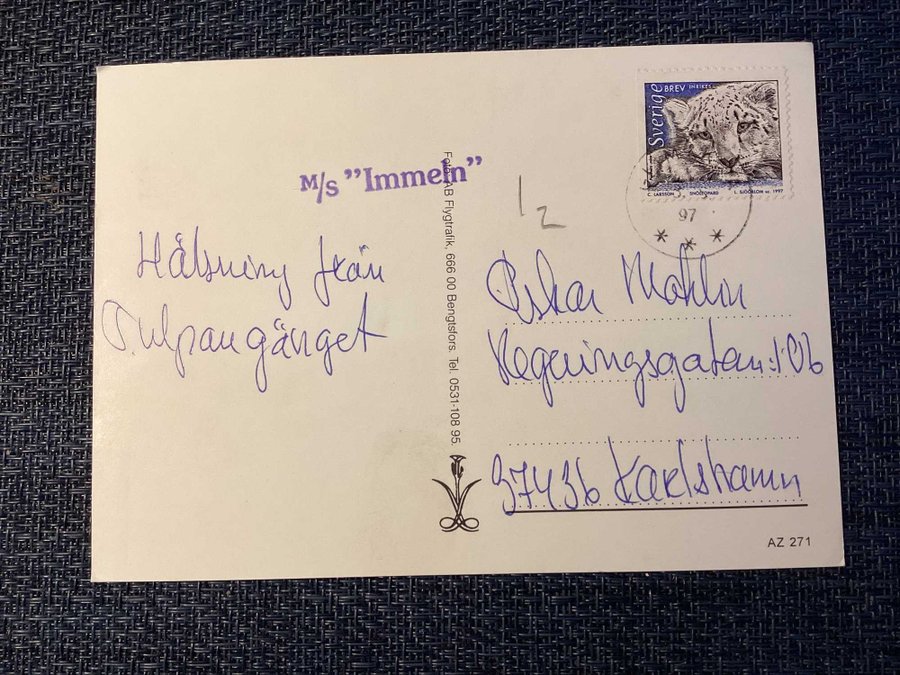 Sverige
BREV INRIKES
C. LARSSON SNÖLEOPARD L. SJÖÖBLOM sc. 1997
97
M/s "Immeln"
12
Hälsning från
Tulpangänget
Foto: AB Flygtrafik. 666 00 Bengtsfors. Tel. 0531-108 95.
Oskar Mahlin
Regeringsgatan 10b
37436 Karlshamn
AZ 271